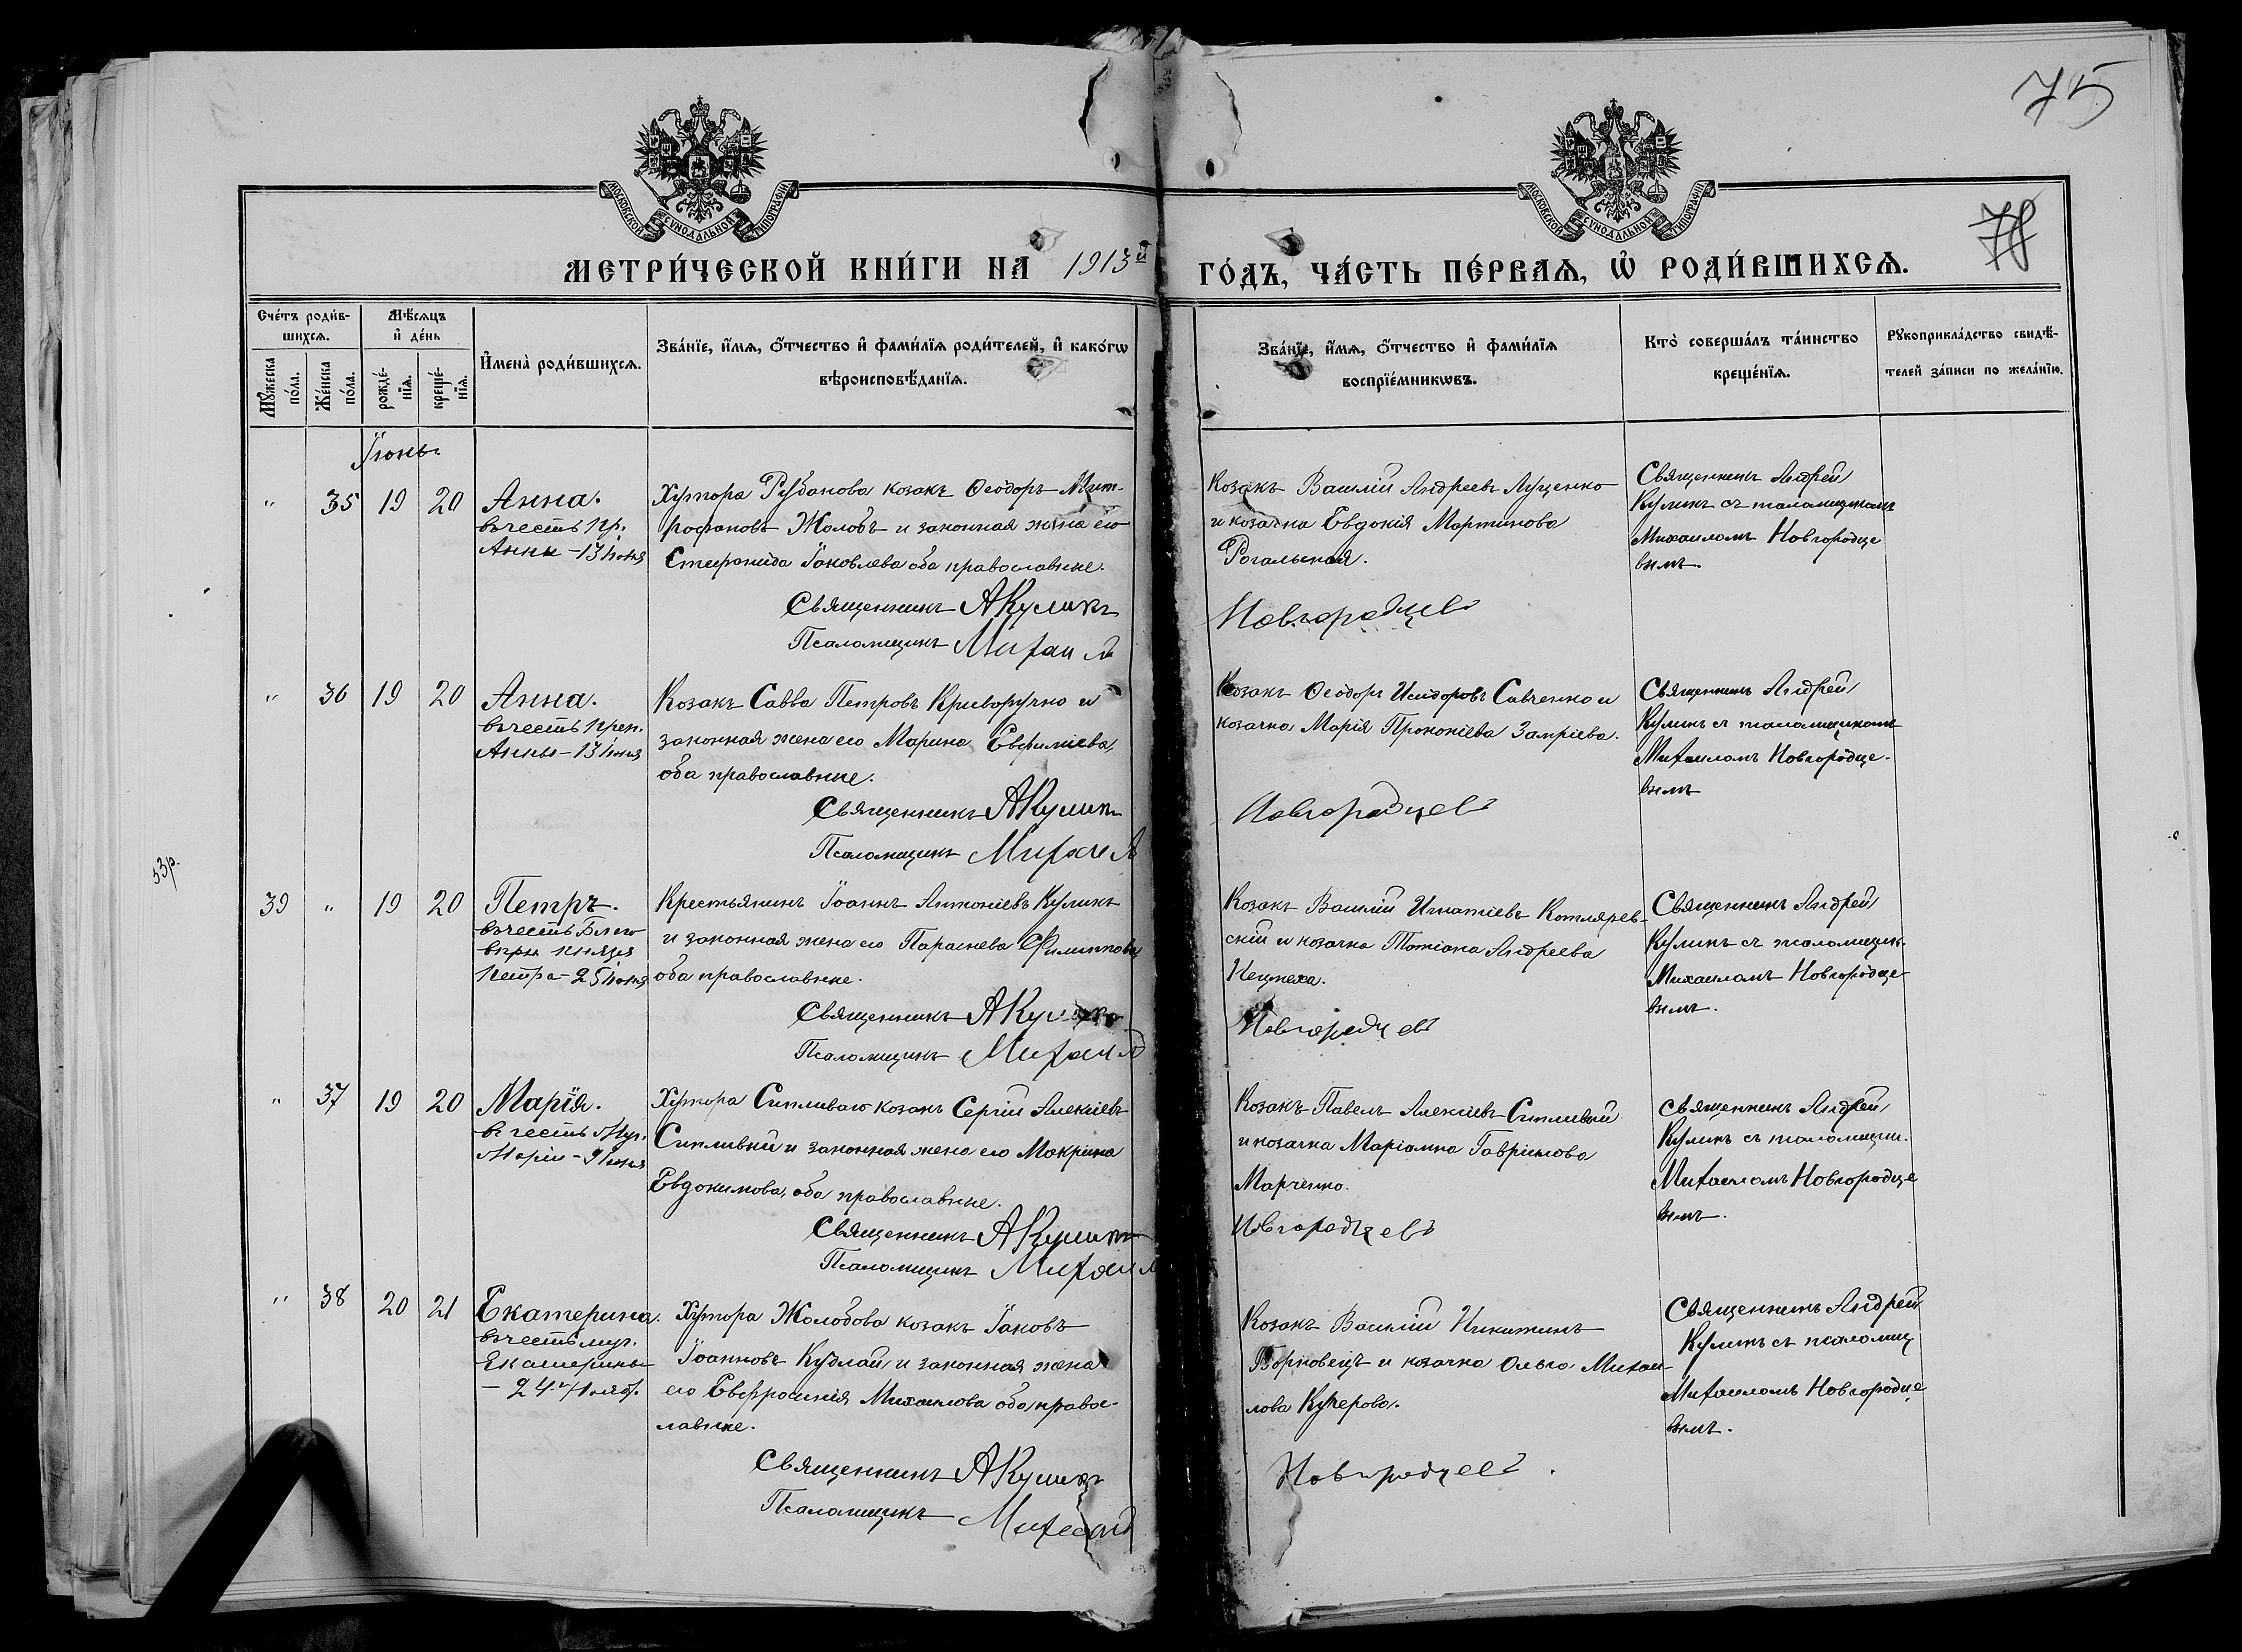 75
78
МОСКОВСКОЙ СѴНОДАЛЬНОЙ ТИПОГРАФІИ
МОСКОВСКОЙ СѴНОДАЛЬНОЙ ТИПОГРАФІИ
МЕТРИ́ЧЕСКОЙ КНИ́ГИ НА 1913й ГО́ДЪ, ЧА́СТЬ ПЕ́РВАѦ, Ѡ҆ РОДИ́ВШИХСѦ.
Сче́тъ роди́в-
шихсѧ.
Мꙋ́жеска по́ла.
Же́нска по́ла.
Мѣ́сѧцъ
и҆ де́нь
рожде́-
нїѧ.
креще́-
нїѧ.
И҆мена̀ роди́вшихсѧ.
Зва́нїе, и҆́мѧ, ѻ҆́тчество и҆ фами́лїѧ роди́телей, и҆ како́гѡ
вѣроисповѣ́данїѧ.
Зва́нїе, и҆́мѧ, ѻ҆́тчество и҆ фами́лїѧ
воспрїе́мникѡвъ.
Кто̀ соверша́лъ та́инство
креще́нїѧ.
Рꙋкоприкла́дство свидѣ́-
телей за́писи по жела́нїю.
Іюнь.
" 35 19 20 Анна.
въ честь пр.
Анны – 13 іюня
Хутора Рубанова козакъ Ѳеодоръ Мит-
рофановъ Жолобъ и законная жена его
Стефанида Іаковлева оба православные.
Священникъ АКуликъ
Псаломщикъ Михаил
Козакъ Василій Андреевъ Луценко
и козачка Евдокія Мартинова
Рогальская.
Новгородцевъ
Священникъ Андрей
Куликъ съ псаломщикомъ
Михаиломъ Новгородце
вымъ.
" 36 19 20 Анна.
въ честь преп.
Анны – 13 іюня
Козакъ Савва Петровъ Криворучко и
законная жена его Марина Евфиміева,
оба православные.
Священникъ АКуликъ
Псаломщикъ Михаил
Козакъ Ѳеодоръ Исидоровъ Савченко и
козачка Марія Прокопіева Запріева.
Новгородцевъ
Священникъ Андрей
Куликъ съ псаломщикомъ
Михаиломъ Новгородце-
вымъ
53р.
39 " 19 20 Петръ.
въ честь Благо
вѣрн. князя
Петра – 25 іюня
Крестьянинъ Іоаннъ Антоніевъ Куликъ
и законная жена его Параскева Филиппова
оба православные.
Священникъ АКуликъ
Псаломщикъ Михаил
Козакъ Василій Игнатіевъ Котлярев-
скій и козачка Татіана Андреева
Новгородцевъ
Священникъ Андрей
Куликъ съ псаломщик.
Михаиломъ Новгородце-
вымъ.
" 37 19 20 Марія.
въ честь Муч.
Маріи – 9 іюня
Хутора Сиплываго козакъ Сергій Алексіевъ
Сипливый и законная жена его Макрина
Евдокимова, оба православные.
Священникъ АКуликъ
Псаломщикъ Михаил
Козакъ Павелъ Алексіевъ Сипливый
и козачка Маріамна Гавріилова
Марченко.
Новгородцевъ
Священникъ Андрей
Куликъ съ псаломщик.
Михаиломъ Новгородце
вымъ.
" 38 20 21 Екатерина.
въ честь муч.
Екатерины
– 24 Нояб.
Хутора Жолобова козакъ Іаковъ
Іоанновъ Кудлай и законная жена
его Евфросинія Михаилова оба правос-
лавные.
Священникъ АКуликъ
Псаломщикъ Михаил
Козакъ Василій Никитинъ
Борковецъ и козачка Ольга Михаи-
лова Кучерова.
Новгородцевъ.
Священникъ Андрей
Куликъ съ псаломщ
Михаиломъ Новгородце
вымъ.